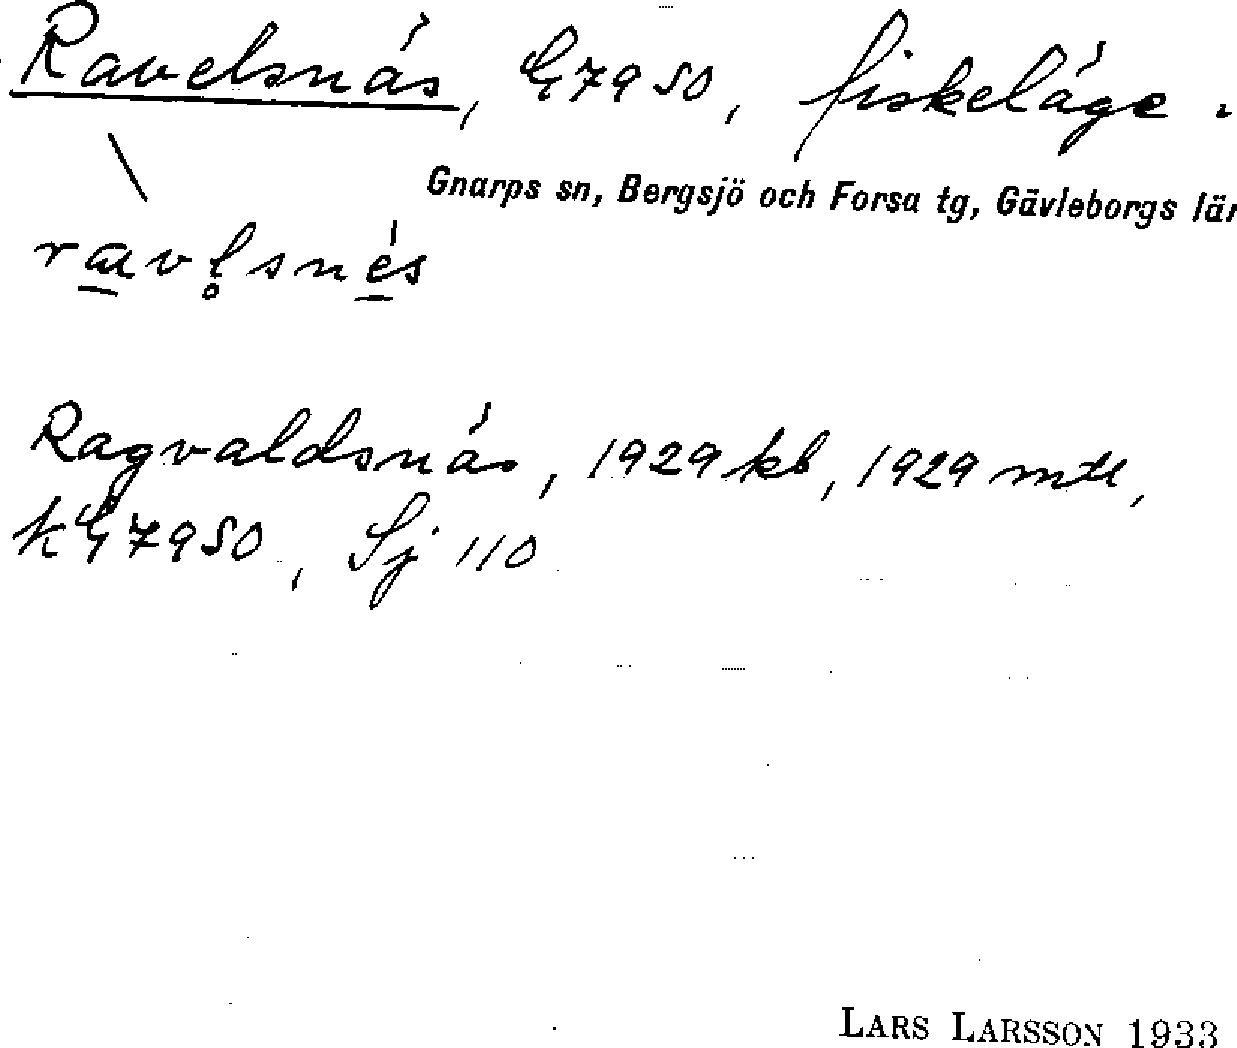 Ravelsnäs, G7950, fiskeläge.
Gnarps sn, Bergsjö och Forsa tg, Gävleborgs län
Ragvaldsnäs, 1929 kb, 1929 mtl,
kG7950, Sj 110
LARS LARSSON 1933